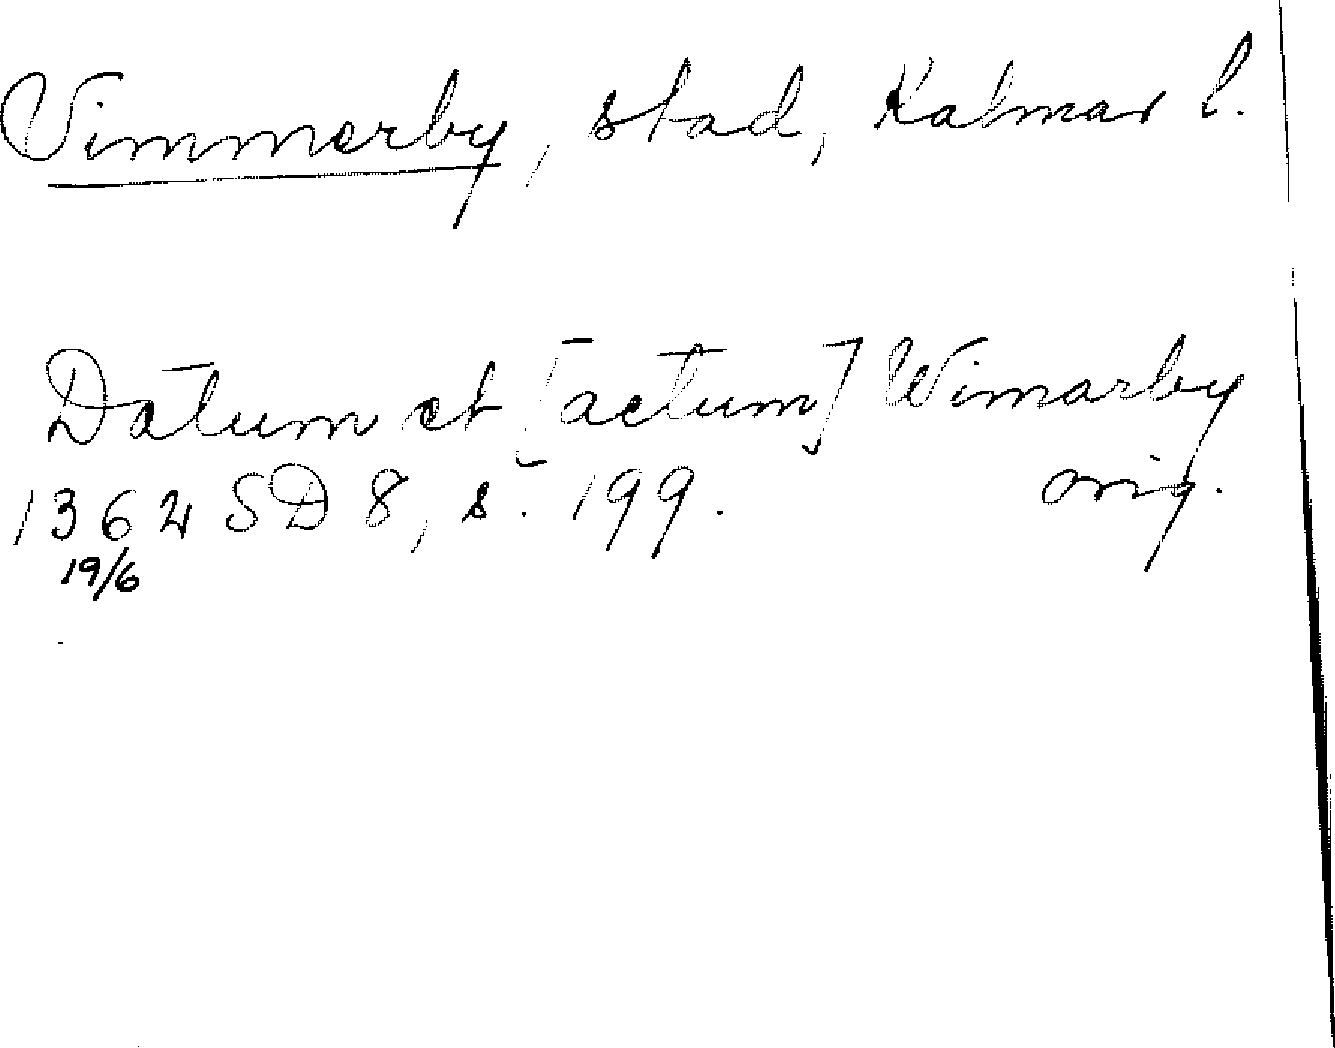 Vimmerby, stad, Kalmar l.
Datum et [actum] Wimarby
1364 SD 8, s. 199. orig.
19/6